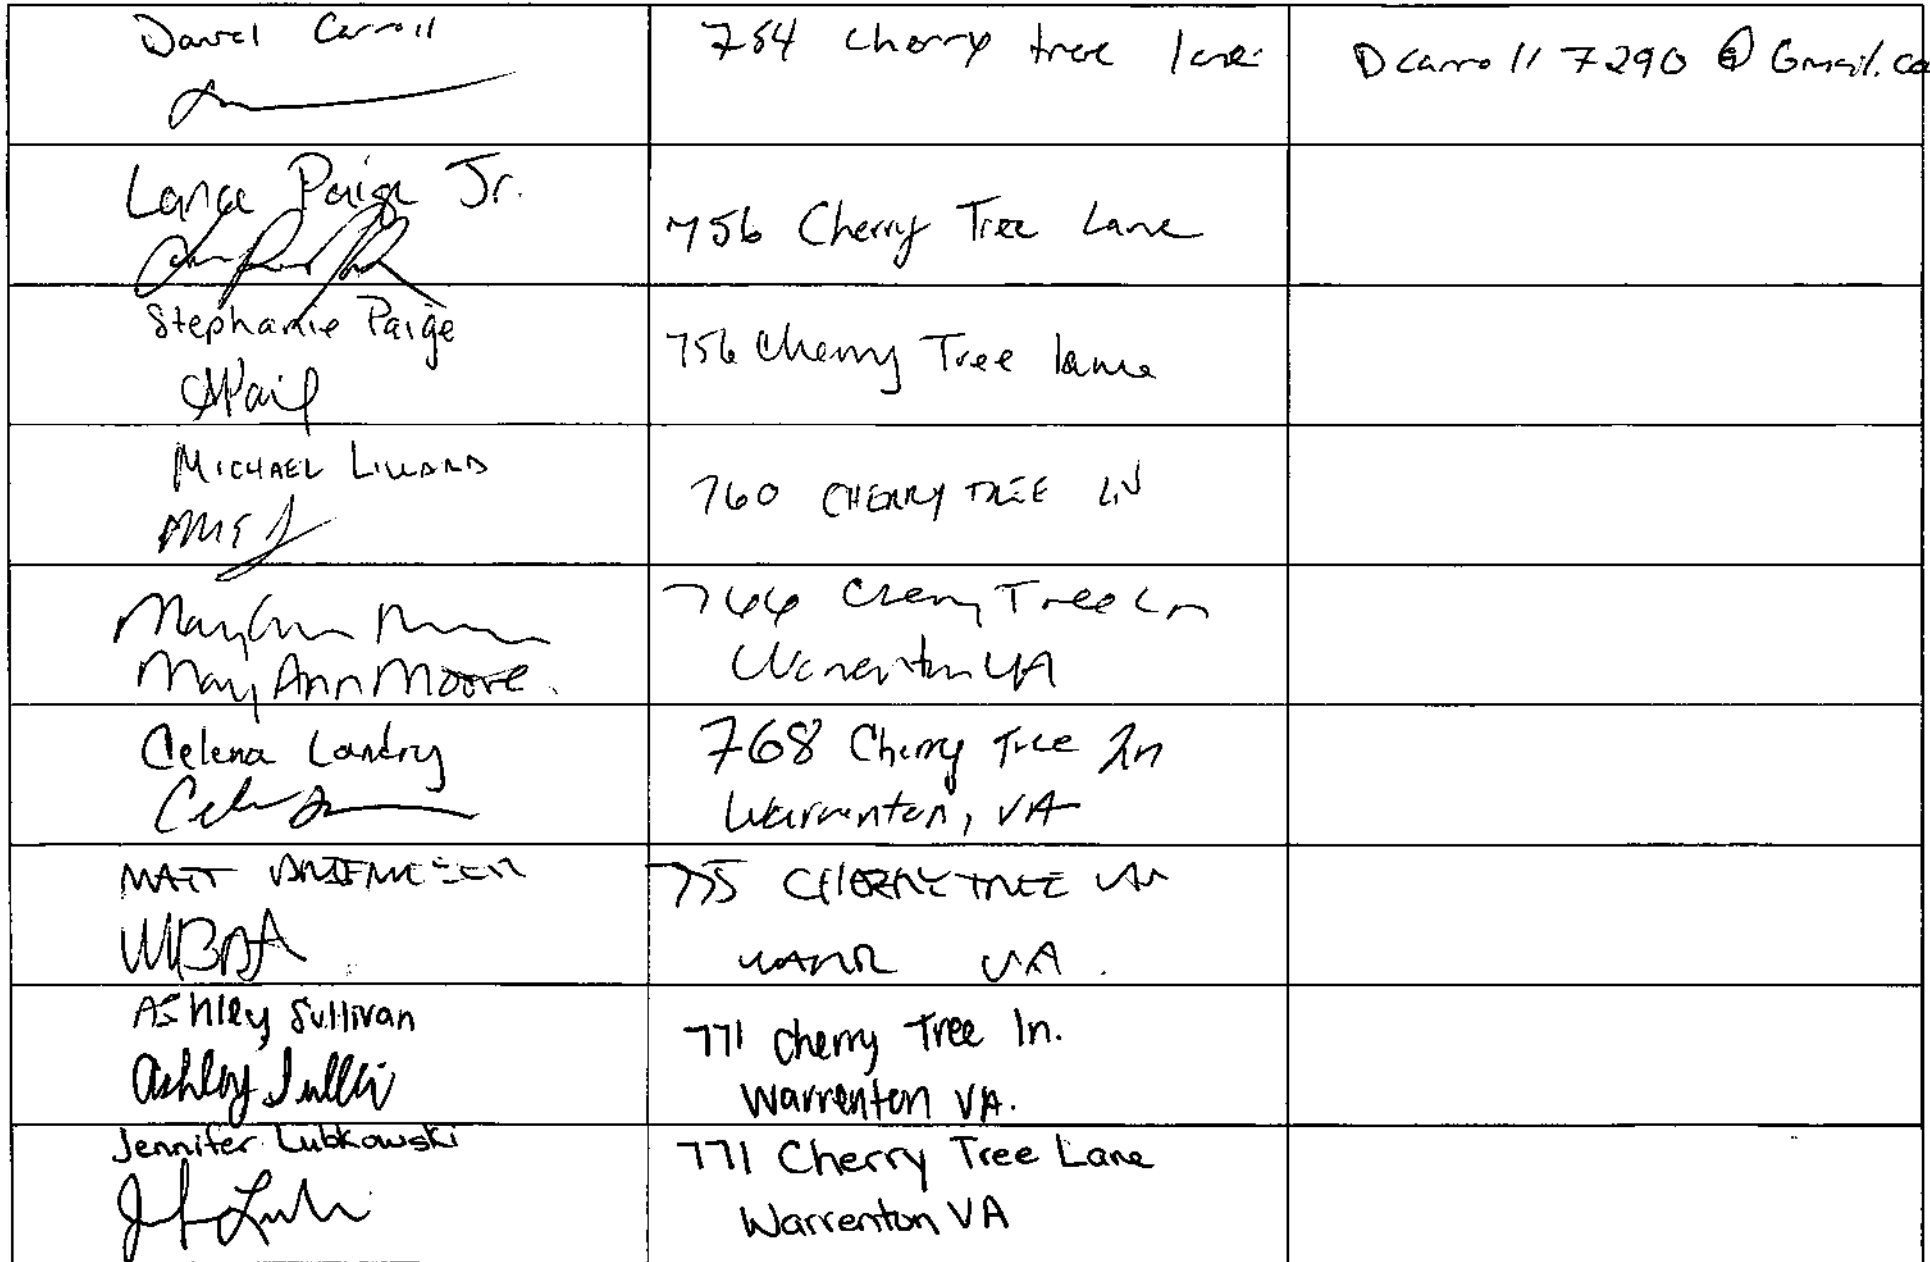 Daniel Carroll
754 Cherry tree lane
Dcarroll7290@Gmail.co
Lance Paige Jr.
756 Cherry Tree Lane
Stephanie Paige
756 Cherry Tree lane
MICHAEL LILLARD
760 CHERRY TREE LN
Mary Ann Moore
Cherry Tree Ln
Warrenton VA
Celena Landry
768 Cherry Tree Ln
Warrenton, VA
MATT
775 CHERRY TREE LN
WARR VA.
Ashley Sullivan
Ashley Sulli
771 cherry Tree ln.
Warrenton VA.
Jennifer Lubkowski
771 Cherry Tree Lane
Warrenton VA